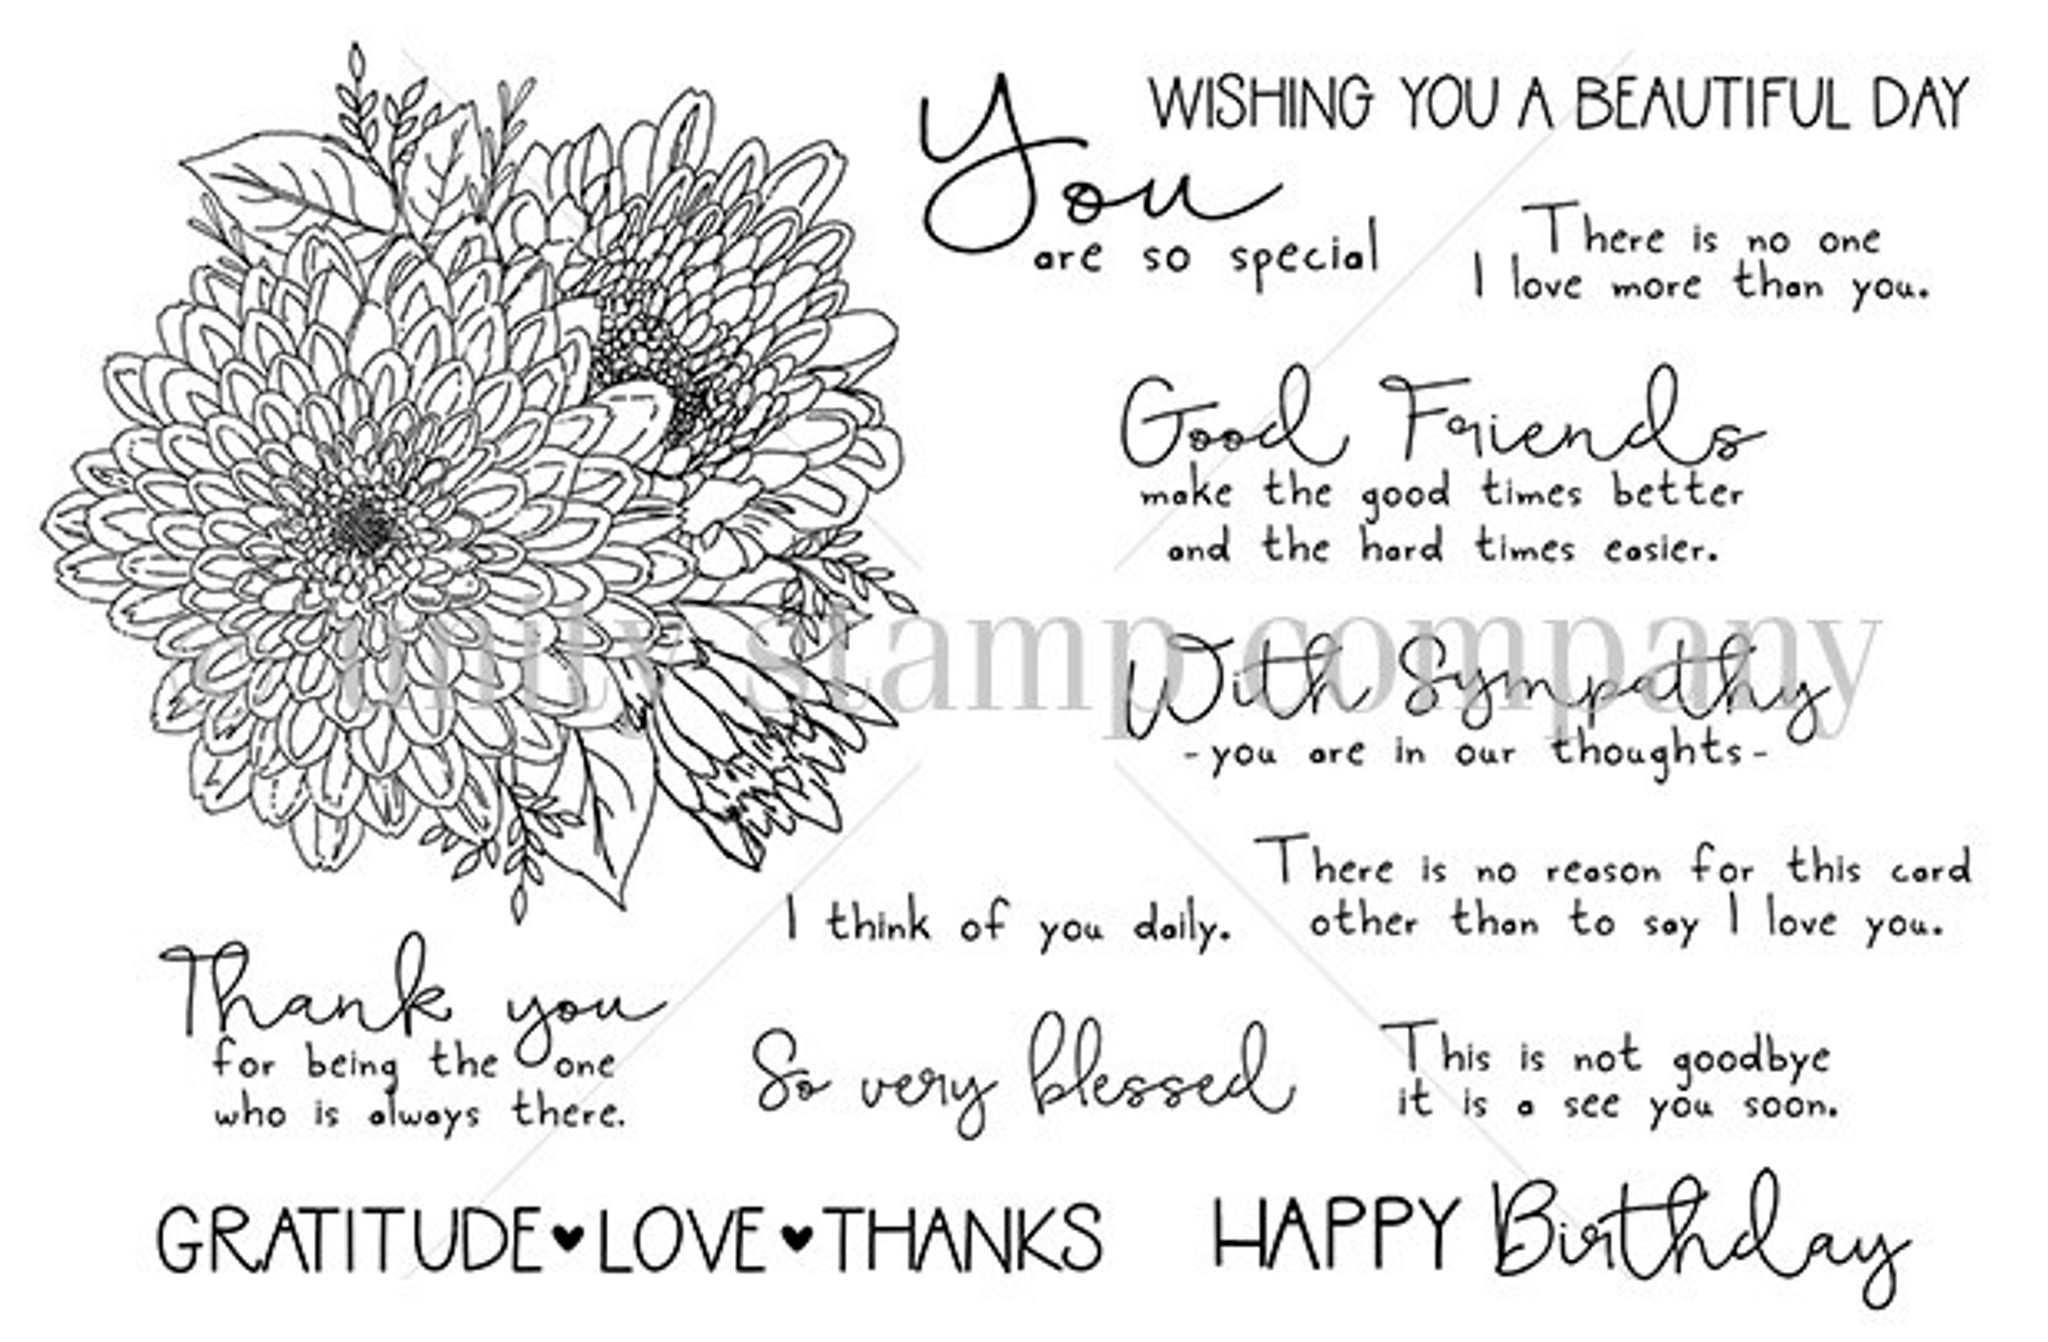 WISHING YOU A BEAUTIFUL DAY
You
are so special
There is no one
I love more than you.
Good Friends
make the good times better
and the hard times easier.
© unity stamp company
With Sympathy
-you are in our thoughts-
There is no reason for this card
other than to say I love you.
I think of you daily.
Thank you
for being the one
who is always there.
So very blessed
This is not goodbye
it is a see you soon.
GRATITUDE♥LOVE♥THANKS
HAPPY Birthday